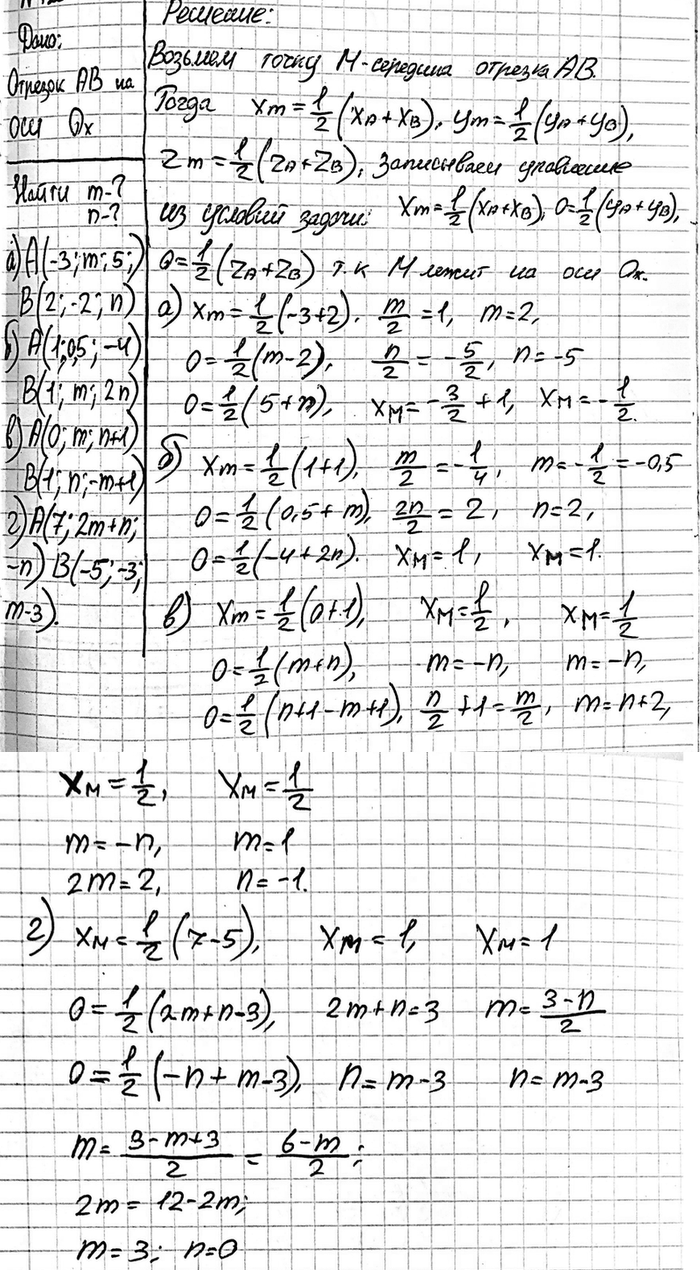 Дано:
Отрезок AB на
оси Ox
Найти m-?
n-?
а) A(-3; m; 5;)
B(2; -2; n)
б) A(1; 0,5; -4)
B(1; m; 2n)
в) A(0; m; n+1)
B(1; n; -m+1)
г) A(7; 2m+n;
-n) B(-5; -3;
m-3).
Решение:
Возьмем точку M-середина отрезка AB.
Тогда Xm = 1/2 (XA + XB), Ym = 1/2 (YA + YB),
Zm = 1/2 (ZA + ZB), Записываем уравнение
из условий задачи: Xm = 1/2 (XA + XB), 0 = 1/2 (YA + YB),
0 = 1/2 (ZA + ZB) т.к M лежит на оси Ox.
а) Xm = 1/2 (-3+2), m/2 = 1, m = 2,
0 = 1/2 (m-2), n/2 = -5/2, n = -5
0 = 1/2 (5+n), XM = -3/2 + 1, XM = -1/2.
б) Xm = 1/2 (1+1), m/2 = -1/4, m = -1/2 = -0,5
0 = 1/2 (0,5 + m), 2n/2 = 2, n = 2,
0 = 1/2 (-4 + 2n). XM = 1, XM = 1.
в) Xm = 1/2 (0+1), XM = 1/2, XM = 1/2
0 = 1/2 (m+n), m = -n, m = -n,
0 = 1/2 (n+1-m+1), n/2 + 1 = m/2, m = n+2,
XM = 1/2, XM = 1/2
m = -n, m = 1
2m = 2, n = -1.
г) XM = 1/2 (7-5), XM = 1, XM = 1
0 = 1/2 (2m+n-3), 2m+n=3 m = (3-n)/2
0 = 1/2 (-n + m-3), n = m-3 n = m-3
m = (3-m+3)/2 = (6-m)/2;
2m = 12-2m;
m = 3; n = 0